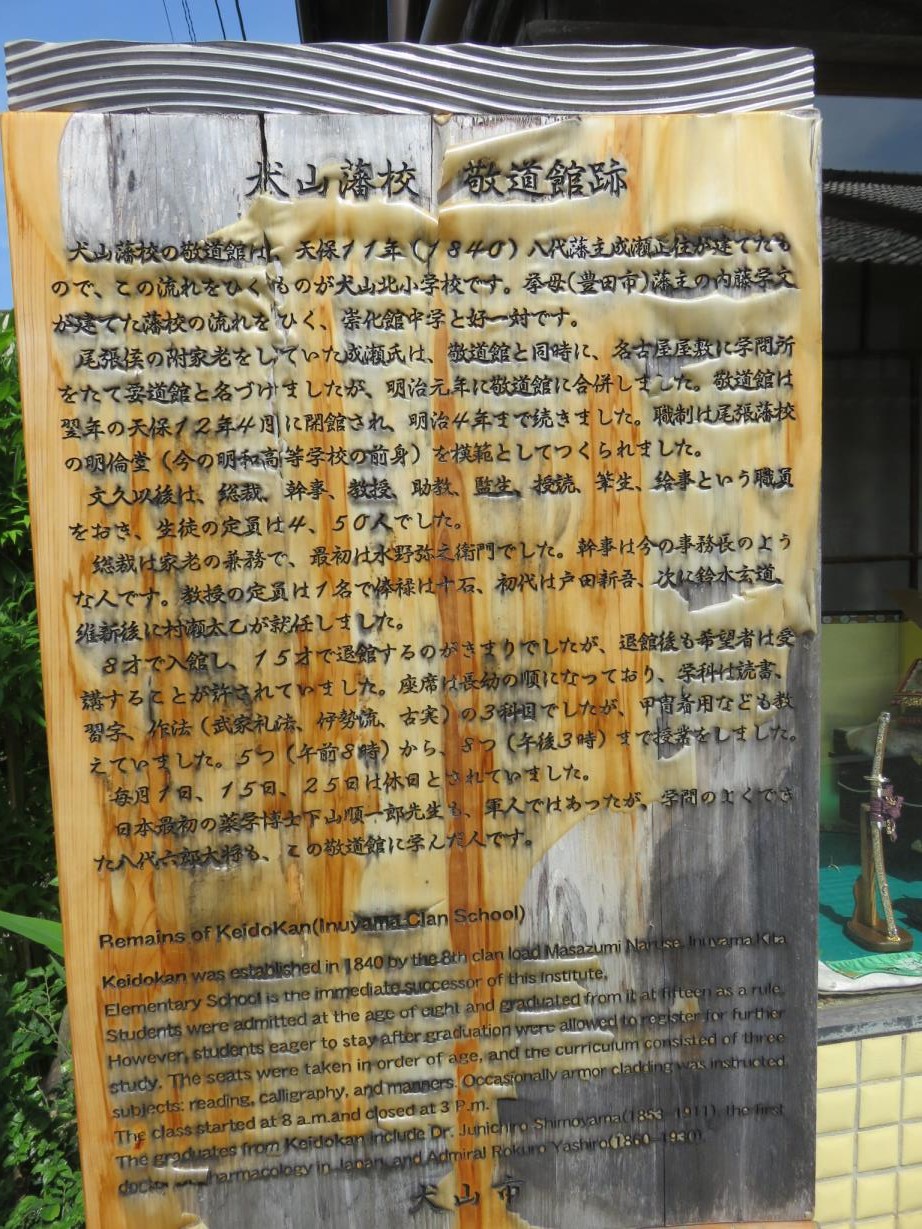 犬山藩校 敬道館跡
犬山藩校の敬道館は、天保11年(1840)八代藩主成瀬正住が建てたも
ので、この流れをひくものが犬山北小学校です。挙母(豊田市)藩主の内藤学文
が建てた藩校の流れをひく、崇化館中学と好一対です。
尾張侯の附家老をしていた成瀬氏は、敬道館と同時に、名古屋屋敷に学問所
をたて要道館と名づけましたが、明治元年に敬道館に合併しました。敬道館は
翌年の天保12年4月に開館され、明治4年まで続きました。職制は尾張藩校
の明倫堂(今の明和高等学校の前身)を模範としてつくられました。
文久以後は、総裁、幹事、教授、助教、監生、授読、筆生、給事という職員
をおき、生徒の定員は4、50人でした。
総裁は家老の兼務で、最初は水野弥之衛門でした。幹事は今の事務長のよう
な人です。教授の定員は1名で俸禄は十石、初代は戸田新吾、次に鈴木玄道、
維新後に村瀬太乙が就任しました。
8才で入館し、15才で退館するのがきまりでしたが、退館後も希望者は受
講することが許されていました。座席は長幼の順になっており、学科は読書、
習字、作法(武家礼法、伊勢流、古実)の3科目でしたが、甲冑着用なども教
えていました。5つ(午前8時)から、8つ(午後3時)まで授業をしました。
毎月1日、15日、25日は休日とされていました。
日本最初の薬学博士下山順一郎先生も、軍人ではあったが、学問のよくでき
た八代六郎大将も、この敬道館に学んだ人です。
Remains of KeidoKan(Inuyama Clan School)
Keidokan was established in 1840 by the 8th clan load Masazumi Naruse. Inuyama Kita
Elementary School is the immediate successor of this institute.
Students were admitted at the age of eight and graduated from it at fifteen as a rule.
However, students eager to stay after graduation were allowed to register for further
study. The seats were taken in order of age, and the curriculum consisted of three
subjects: reading, calligraphy, and manners. Occasionally armor cladding was instructed.
The class started at 8 a.m.and closed at 3 P.m.
The graduates from Keidokan include Dr. Junichiro Shimoyama(1853-1911), the first
doctor of pharmacology in Japan, and Admiral Rokuro Yashiro(1860-1930).
犬山市